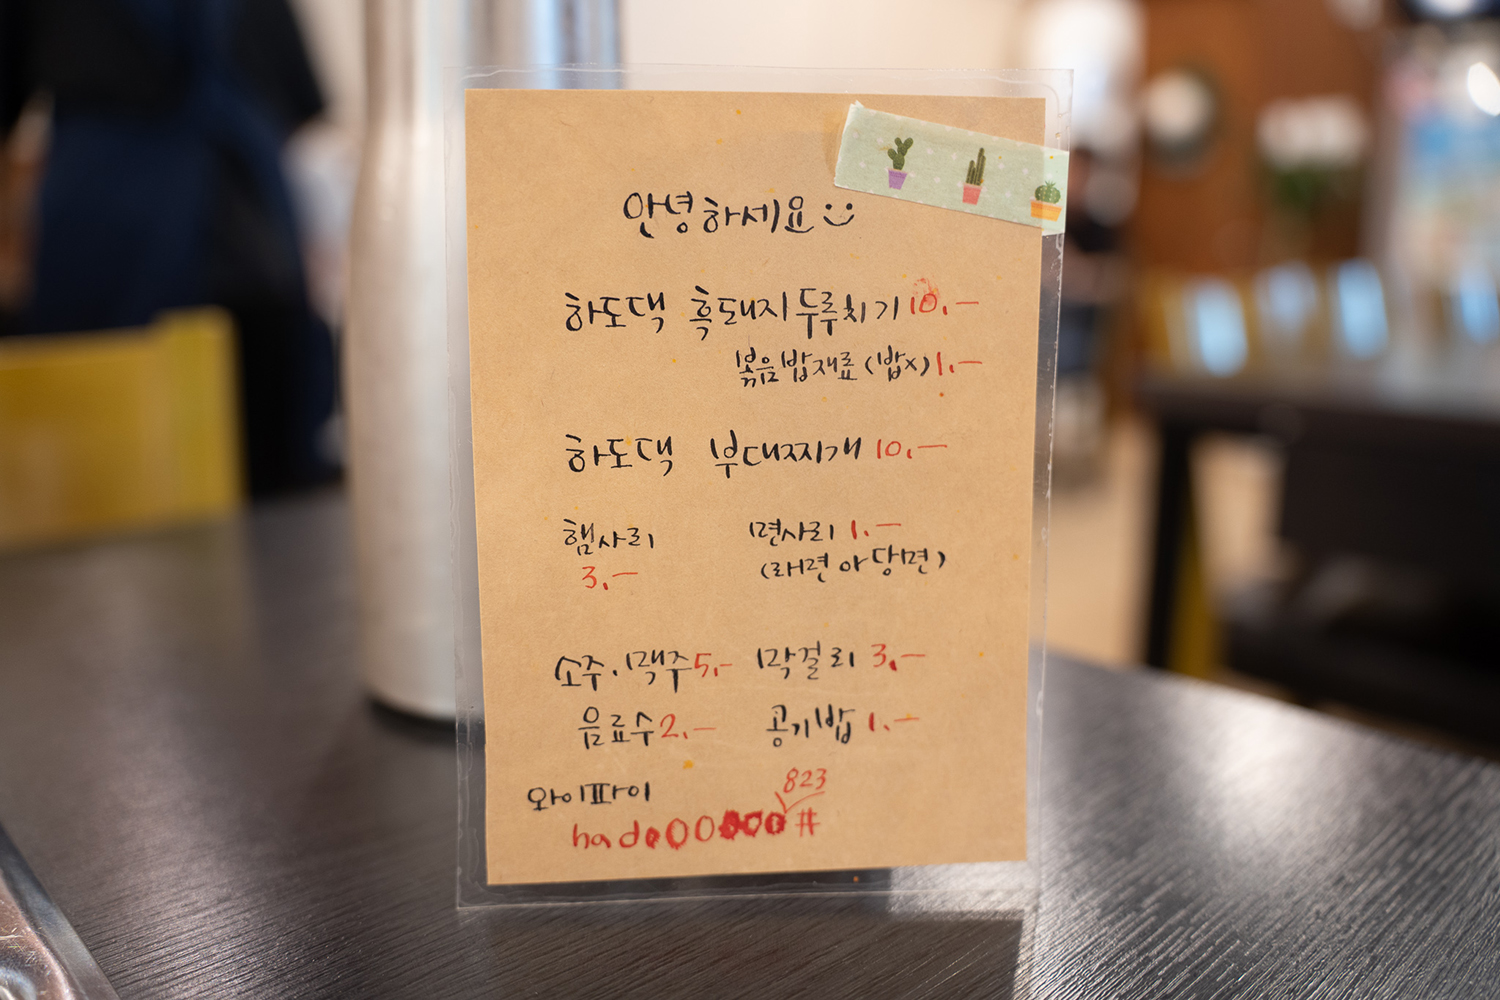 안녕하세요
하도댁 흑돼지두루치기 10.-
볶음밥재료(밥x) 1.-
하도댁 부대찌개 10.-
햄사리 면사리 1.-
3.- (라면 or 당면)
소주.맥주 5.- 막걸리 3.-
음료수 2.- 공기밥 1.-
와이파이 823
#